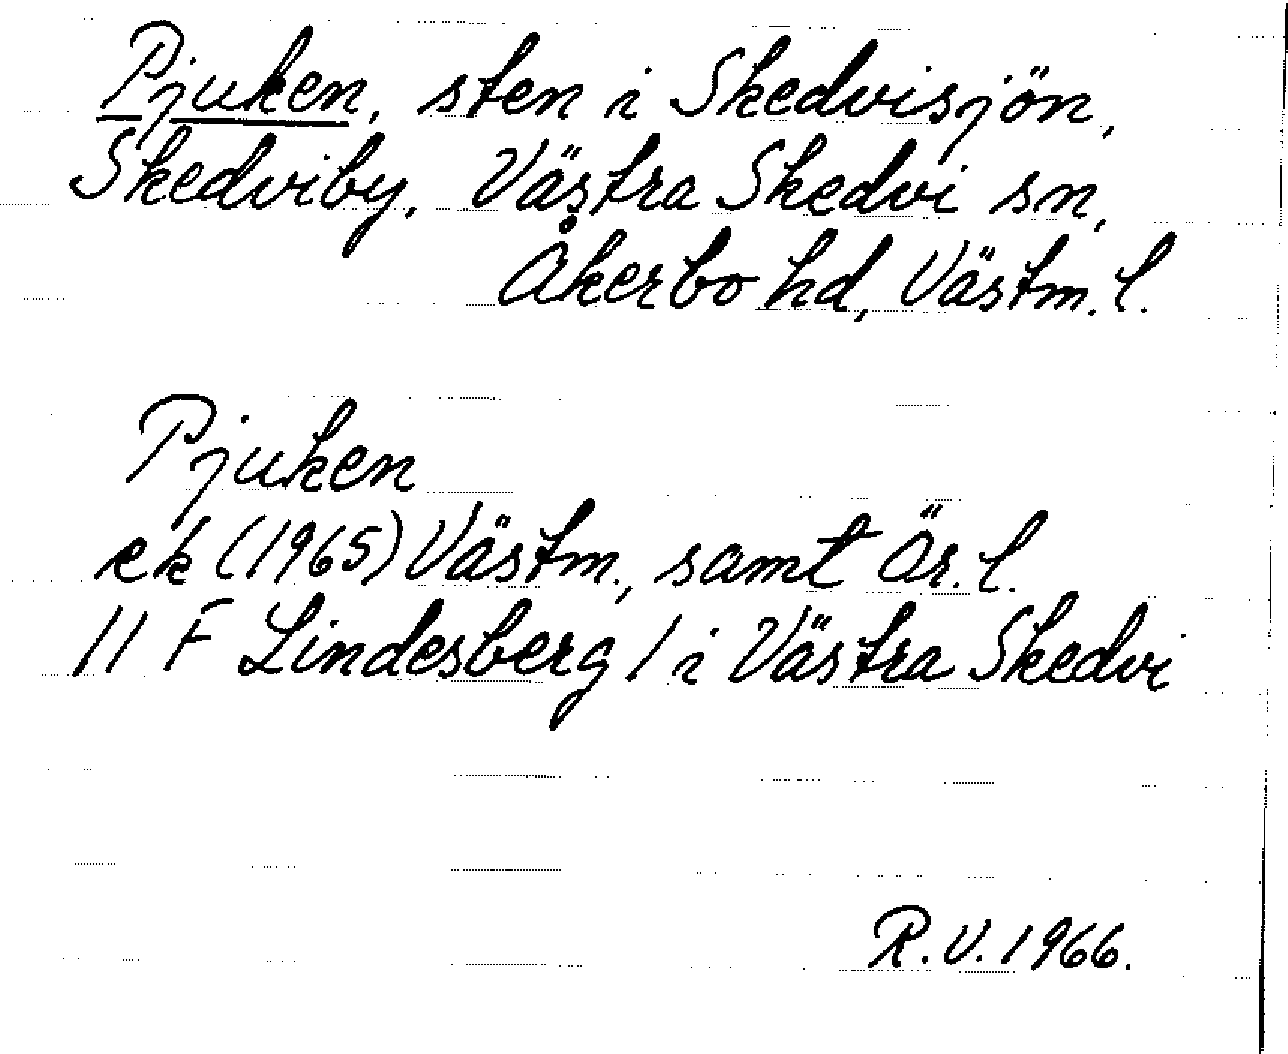 Pjuken, sten i Skedvisjön,
Skedviby, Västra Skedvi sn,
Åkerbo hd, Västm. l.
Pjuken
ek (1965) Västm., samt Är. l.
11 F Lindesberg / i Västra Skedvi
R.V. 1966.